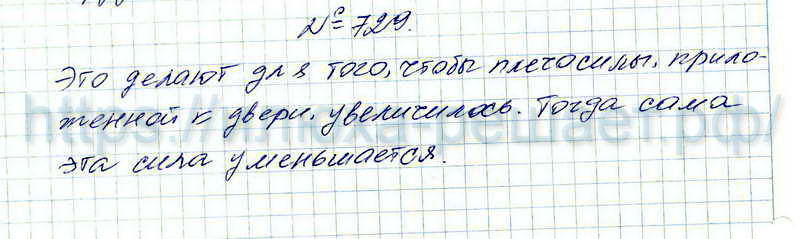 № 729.
Это делают для того, чтобы плечо силы, прило-
женной к двери, увеличилось. Тогда сама
эта сила уменьшается.